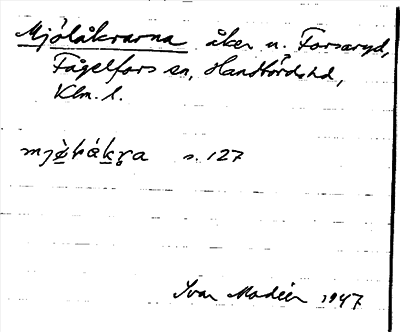 Mjölåkrarna åker u. Forsaryd,
Fågelfors sn, Handbörds hd,
Klm. l.
s. 127
Ivar Modéer 1947